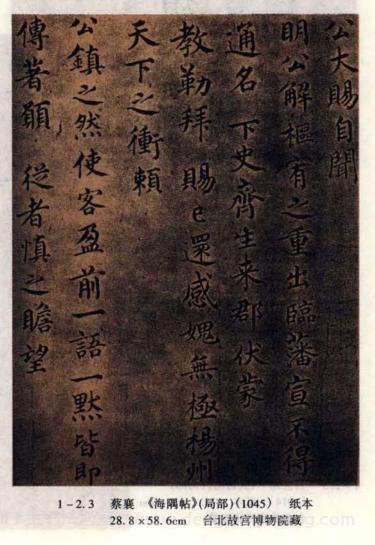 公大賜自聞
明公解樞宥之重出臨藩宣不得
通名 下史齊生来郡伏蒙
教勒拜 賜已還感媿無極楊州
天下之衝賴
公鎮之然使客盈前一語一默皆即
傳著願 從者慎之瞻望
1-2.3 蔡襄 《海隅帖》(局部)(1045) 纸本
28.8×58.6cm 台北故宫博物院藏